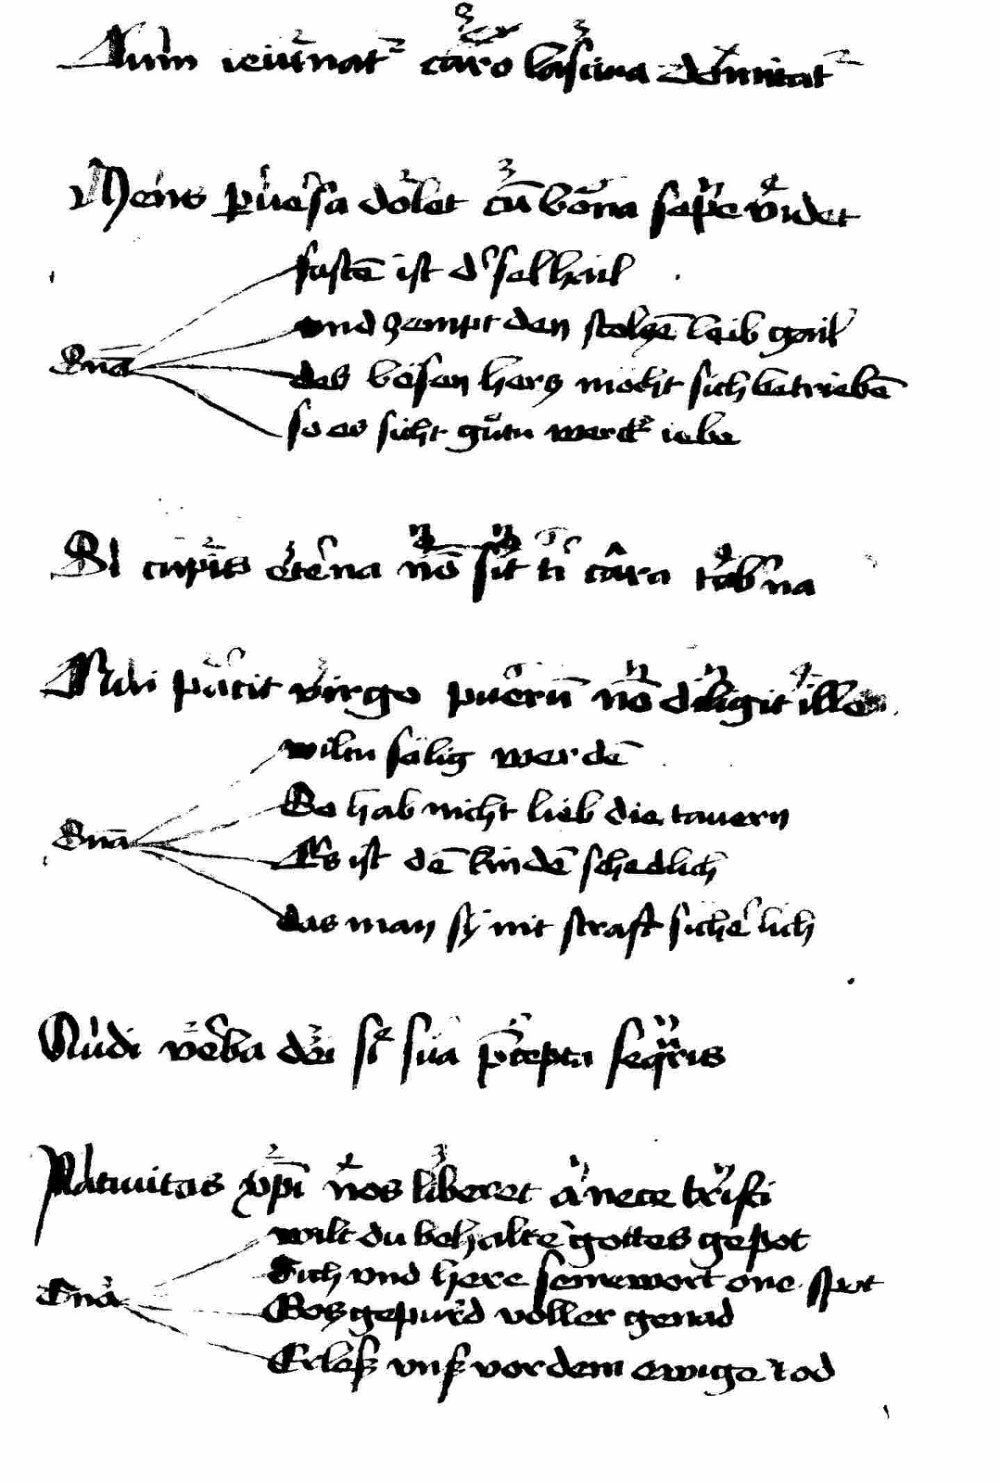 Dum ieiunatr caro lasciua domitatr
Mens puersa dolet cū bona sepe videt
fasten ist der sel hail
vnd zempt den stolzē leib gail
des bosen herz mocht sich betriebē
so es sicht gutu werck iebe
Si cupis eterna nō sit ti cara tab'na
parit virgo puerū nō diligit ille
wiltu salig werdē
So hab nicht lieb die tauern
Es ist dē kindē schedlich
das man sy nit straft sicherlich
Audi verba dei si sua pcepta seqris
Natiuitas xpi nos liberet a nece tristi
wilt du behalte gottes gepot
Sich vnd here seine wort one spot
gepurd voller genad
Erlos vns vor dem ewige tod